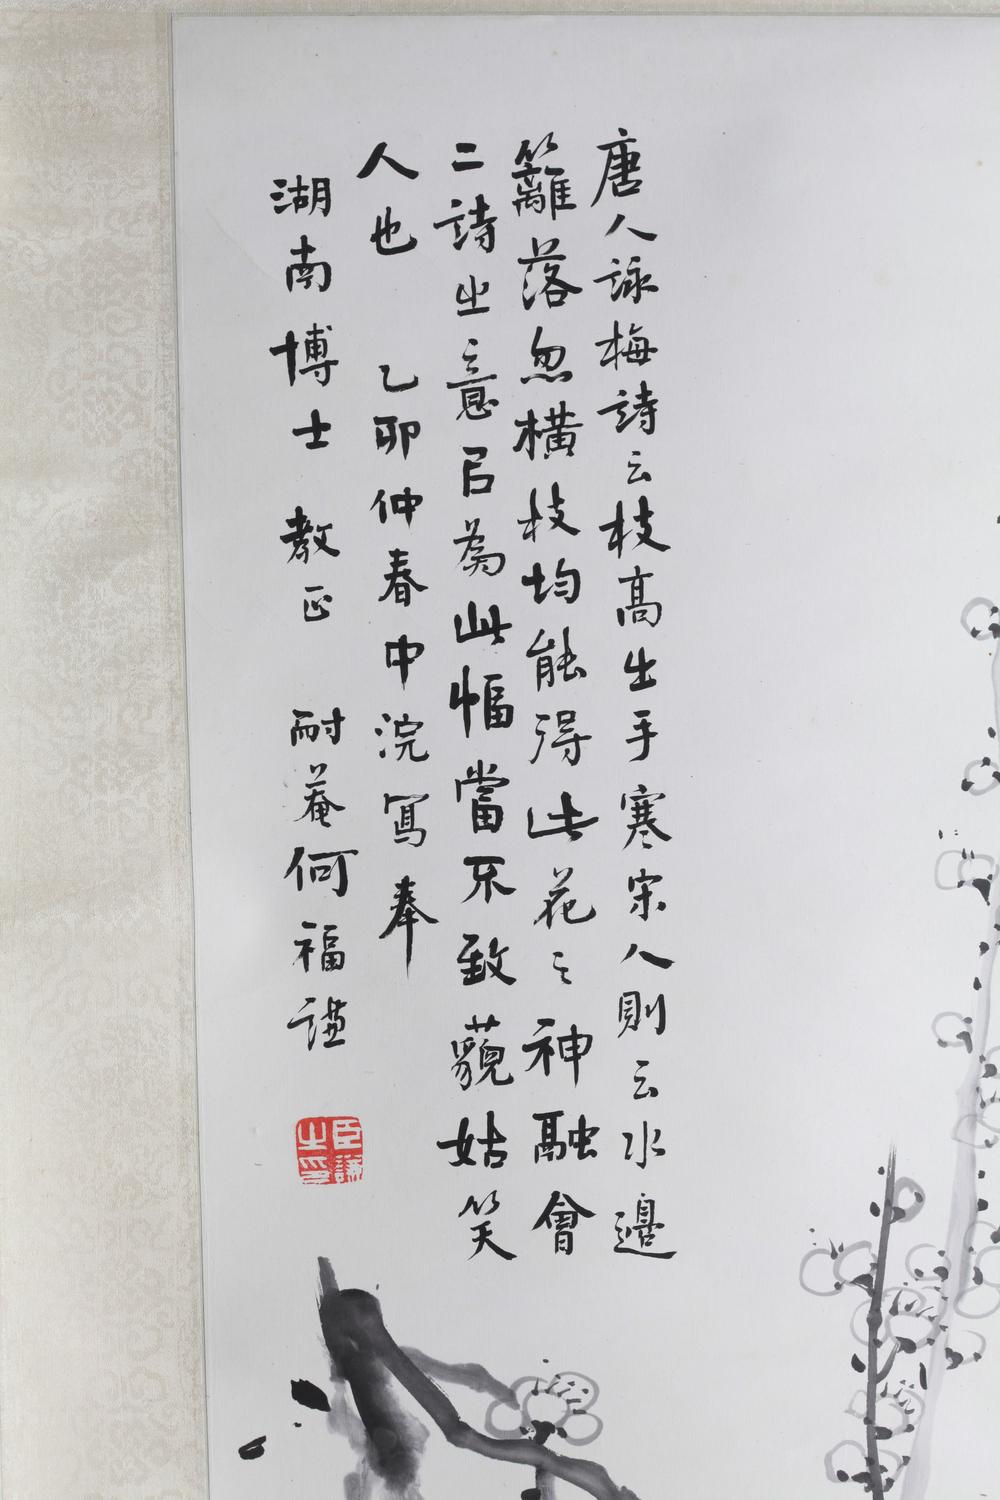 唐人詠梅詩云枝高出手寒宋人則云水邊
籬落忽橫枝均能得此花之神融會
二詩之意㠯為此幅當不致藐姑笑
人也 乙卯仲春中浣寫奉
湖南博士 教正 耐菴何福謙
臣謙之印